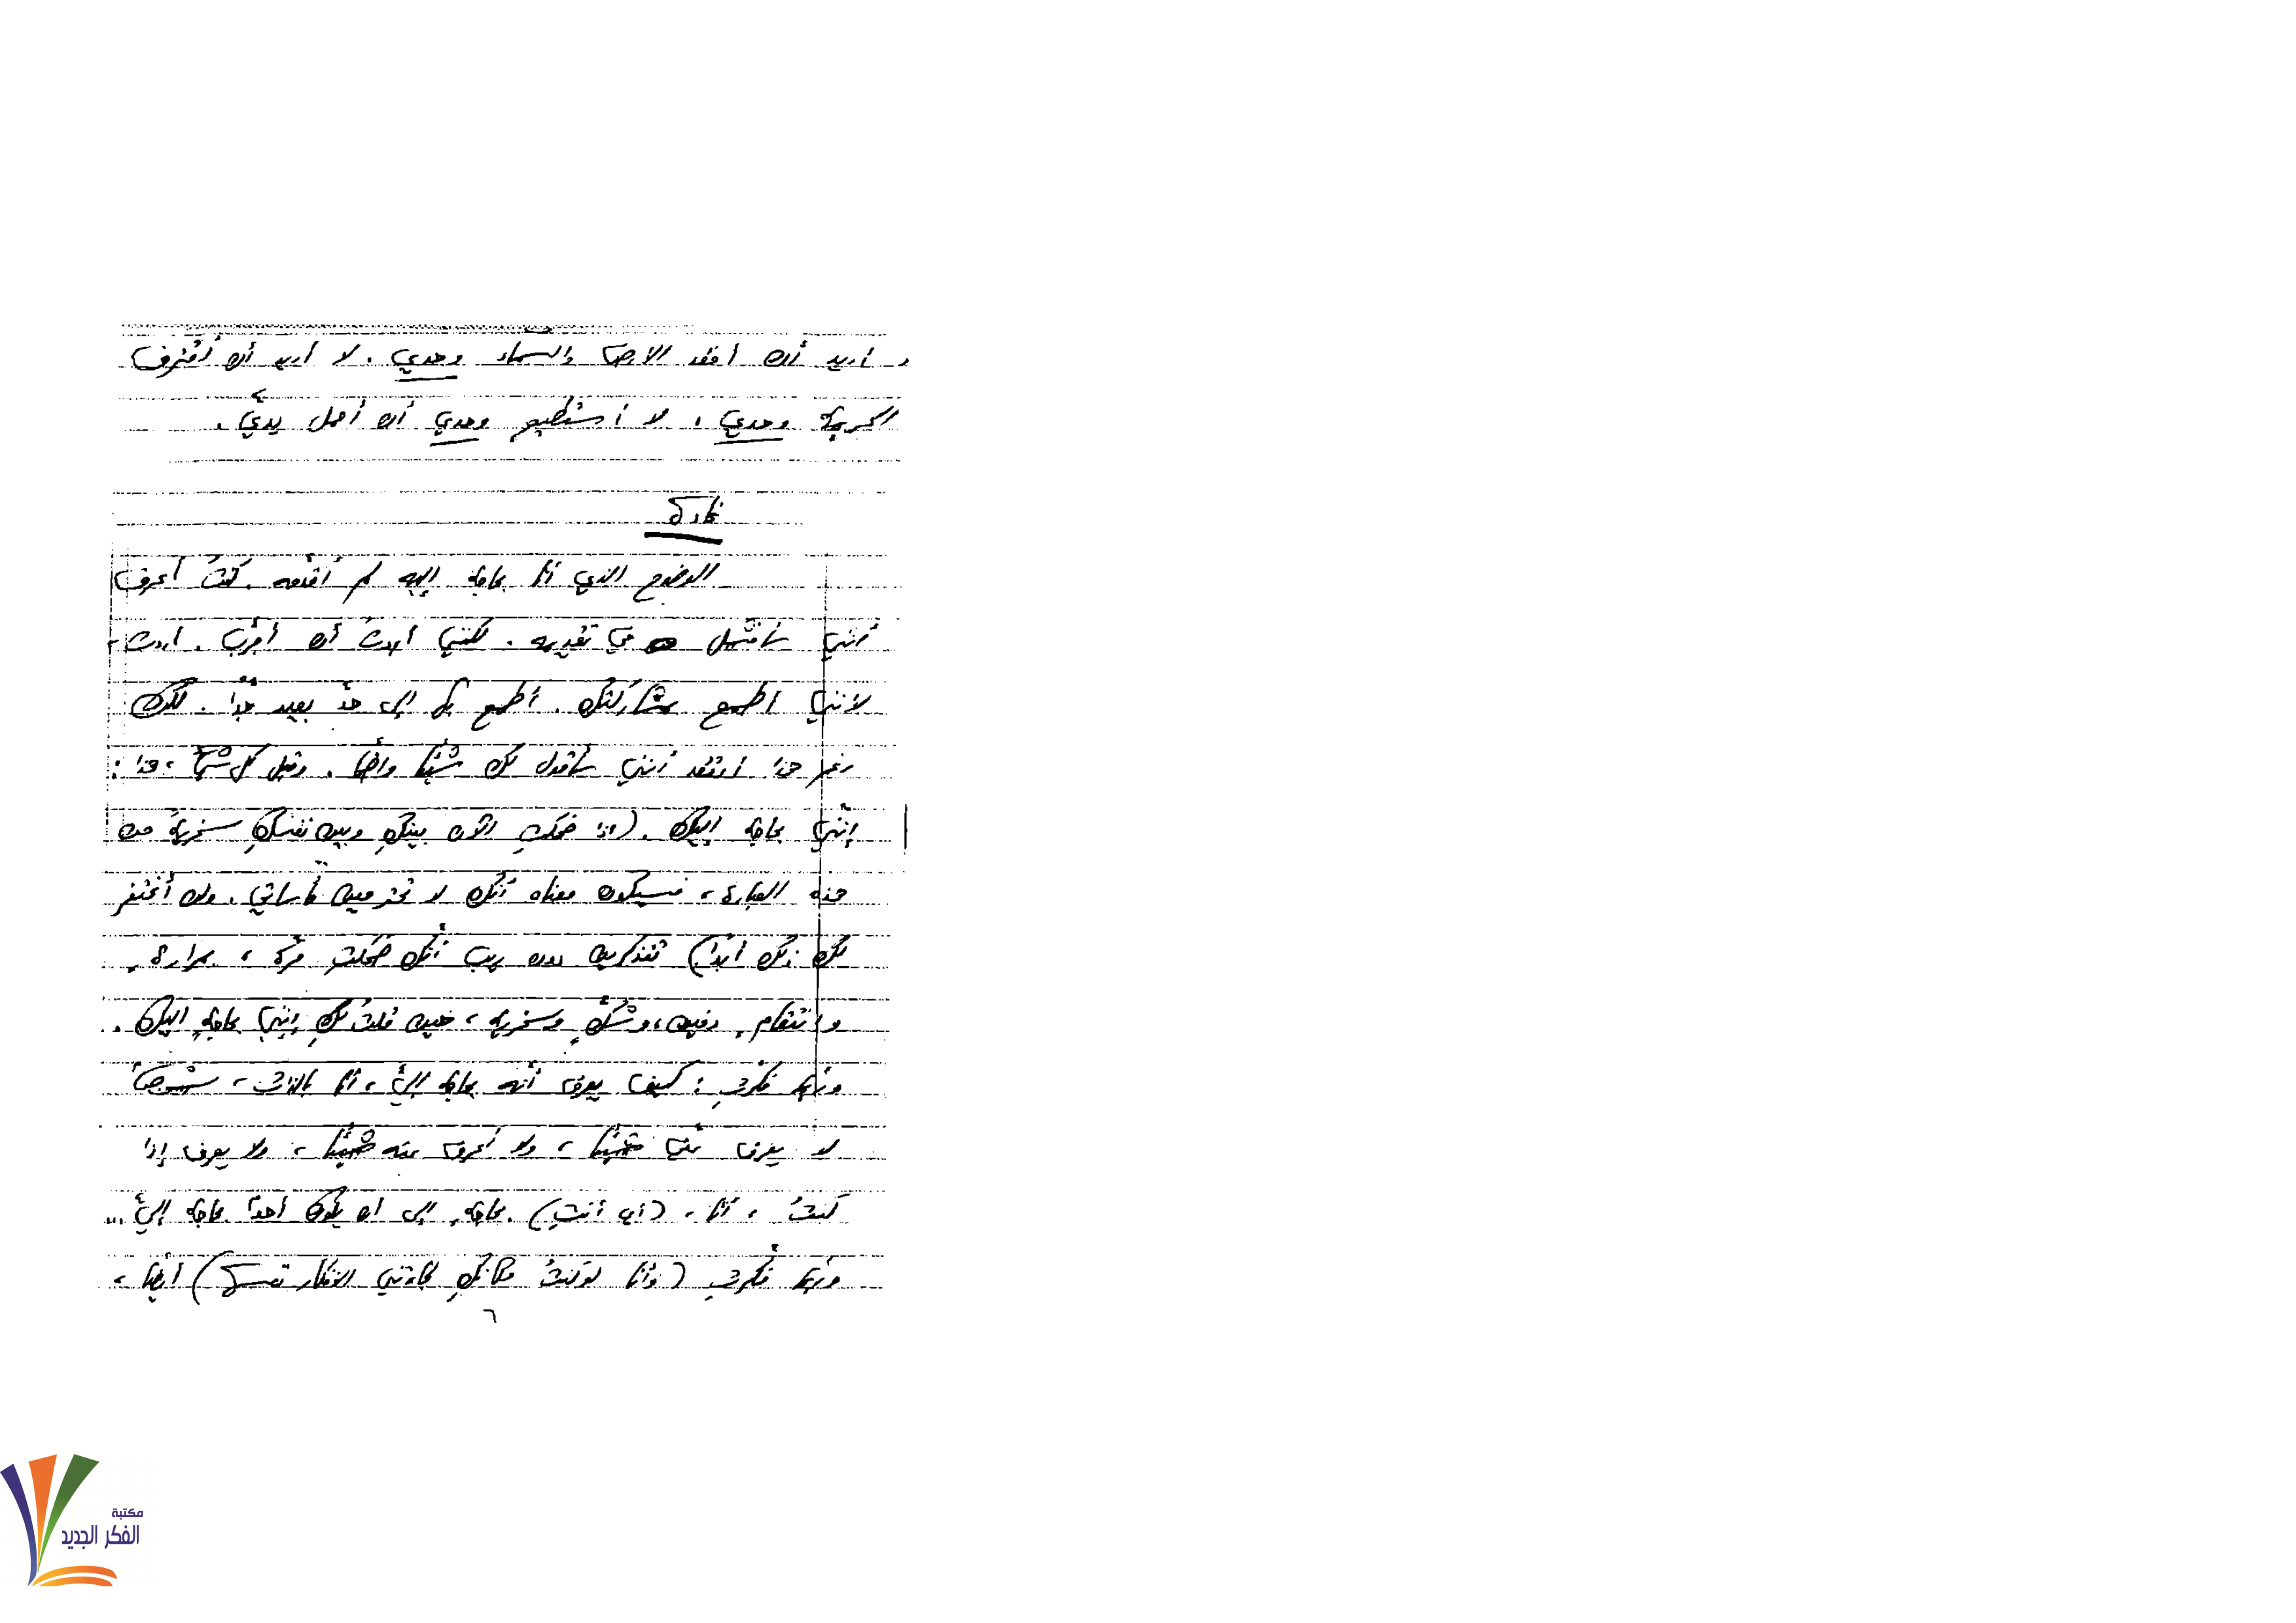 أريد أن أفقد الأرض والسماء وحدي. لا أريد أن أقترف
الجريمة وحدي، لا أستطيع وحدي أن أحمل يديّ.
غادة
الوضوح الذي أنا بحاجة إليه لم أقدّمه. كنتُ أعرف
أنني سأفشل في تقديمه. لكنني أردتُ أن أجرّب. أردت،
لأنني أطمع بمشاركتك. أطمع بك إلى حدّ بعيد جدّاً. لكن
رغم هذا أعتقد أنني سأقول لك شيئاً واضحاً. وقبل كل شيء، هذا:
إنّني بحاجة إليك. (إذا ضحكتِ الآن بينكِ وبين نفسكِ سخريةً من
هذه العبارة، فسيكون معناه أنّك لا تحترمين مأساتي. ولن أغتفر
لكِ ذلك أبداً) تتذكرين دون ريب أنّك ضحكتِ مرّة، بمرارةٍ،
وانتقامٍ دفين، وشكٍّ وسخرية، حين قلتُ لكِ إنني بحاجةٍ إليك.
وربّما فكّرتِ: كيف يعرف أنّه بحاجة إليّ، أنا بالذات،
لا يعرف عنّي شيئاً، ولا أعرف عنه شيئاً، ولا يعرف إذا
كنتُ، أنا، (أي أنتِ) بحاجةٍ إلى أن يكون أحدٌ بحاجة إليّ...
وربّما فكّرتِ (وأنا لو كنتُ مكانكِ لجاءتني الأفكار نفسها) أيضاً،
٦
مكتبة
الفكر الجديد